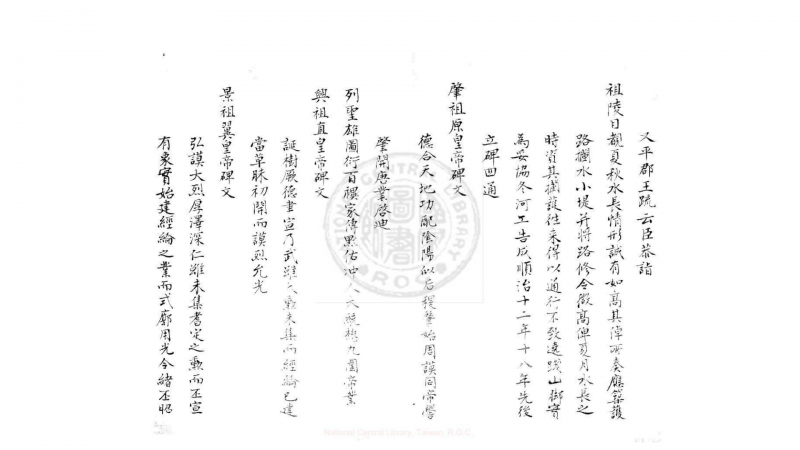 又平郡王疏云臣恭詣
祖陵日覩夏秋水長情形誠有如高其倬所奏應築護
路攔水小堤并將路修令微高俾夏月水長之
時資其攔護往來得以通行不致遶踐山鄉實
為妥協冬河工告成順治十二年十八年先後
立碑四通
肇祖原皇帝碑文
德合天地功配陰陽似后稷肇始周謨同帝嚳
肇開唐業啓迪
列聖雄圖衍百禩家傳黙佑冲人大統撫九圍帝業
興祖直皇帝碑文
誕樹厥德聿宣乃武雖大勲未集而經綸已建
當草昧初開而謨烈允光
景祖翼皇帝碑文
弘謨大烈厚澤深仁雖未集耆定之勲而丕宣
有象實始建經綸之業而式廓用光令緒丕昭
National Central Library, Taiwan, R.O.C.